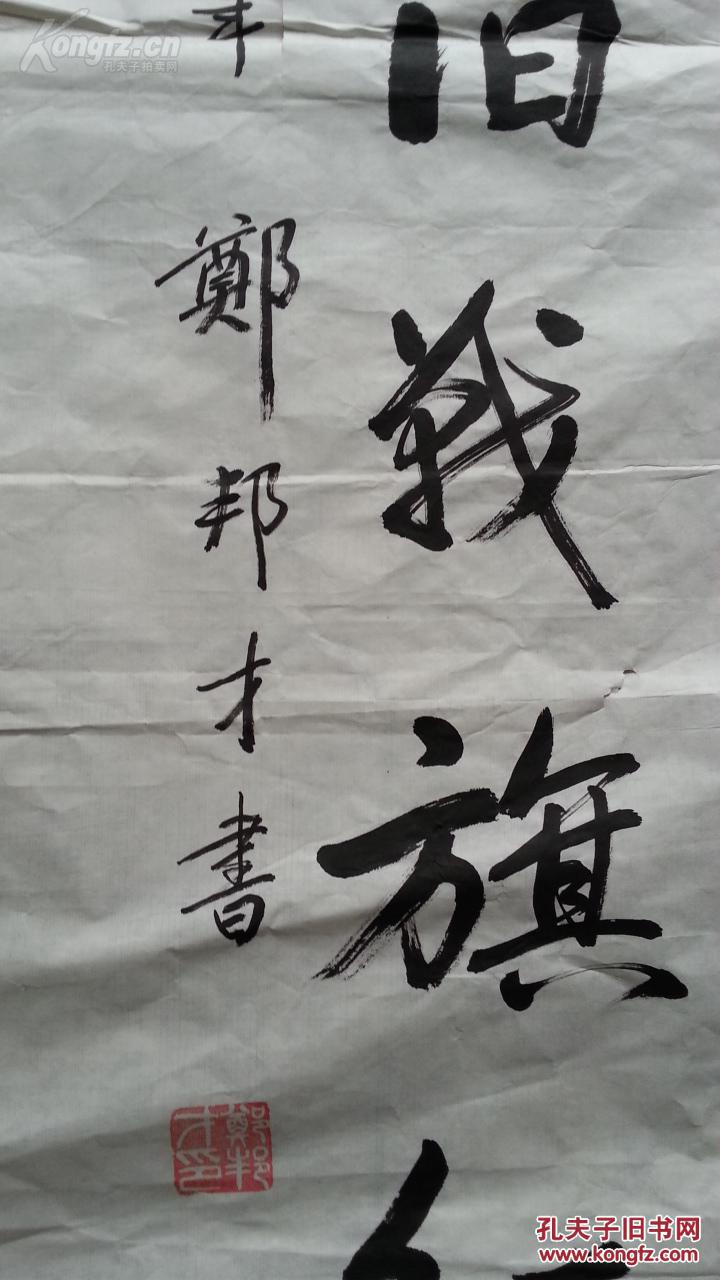 Kongfz.cn
孔夫子拍卖网
旧戰旗
年
鄭邦才書
鄭邦才印
孔夫子旧书网
www.kongfz.com